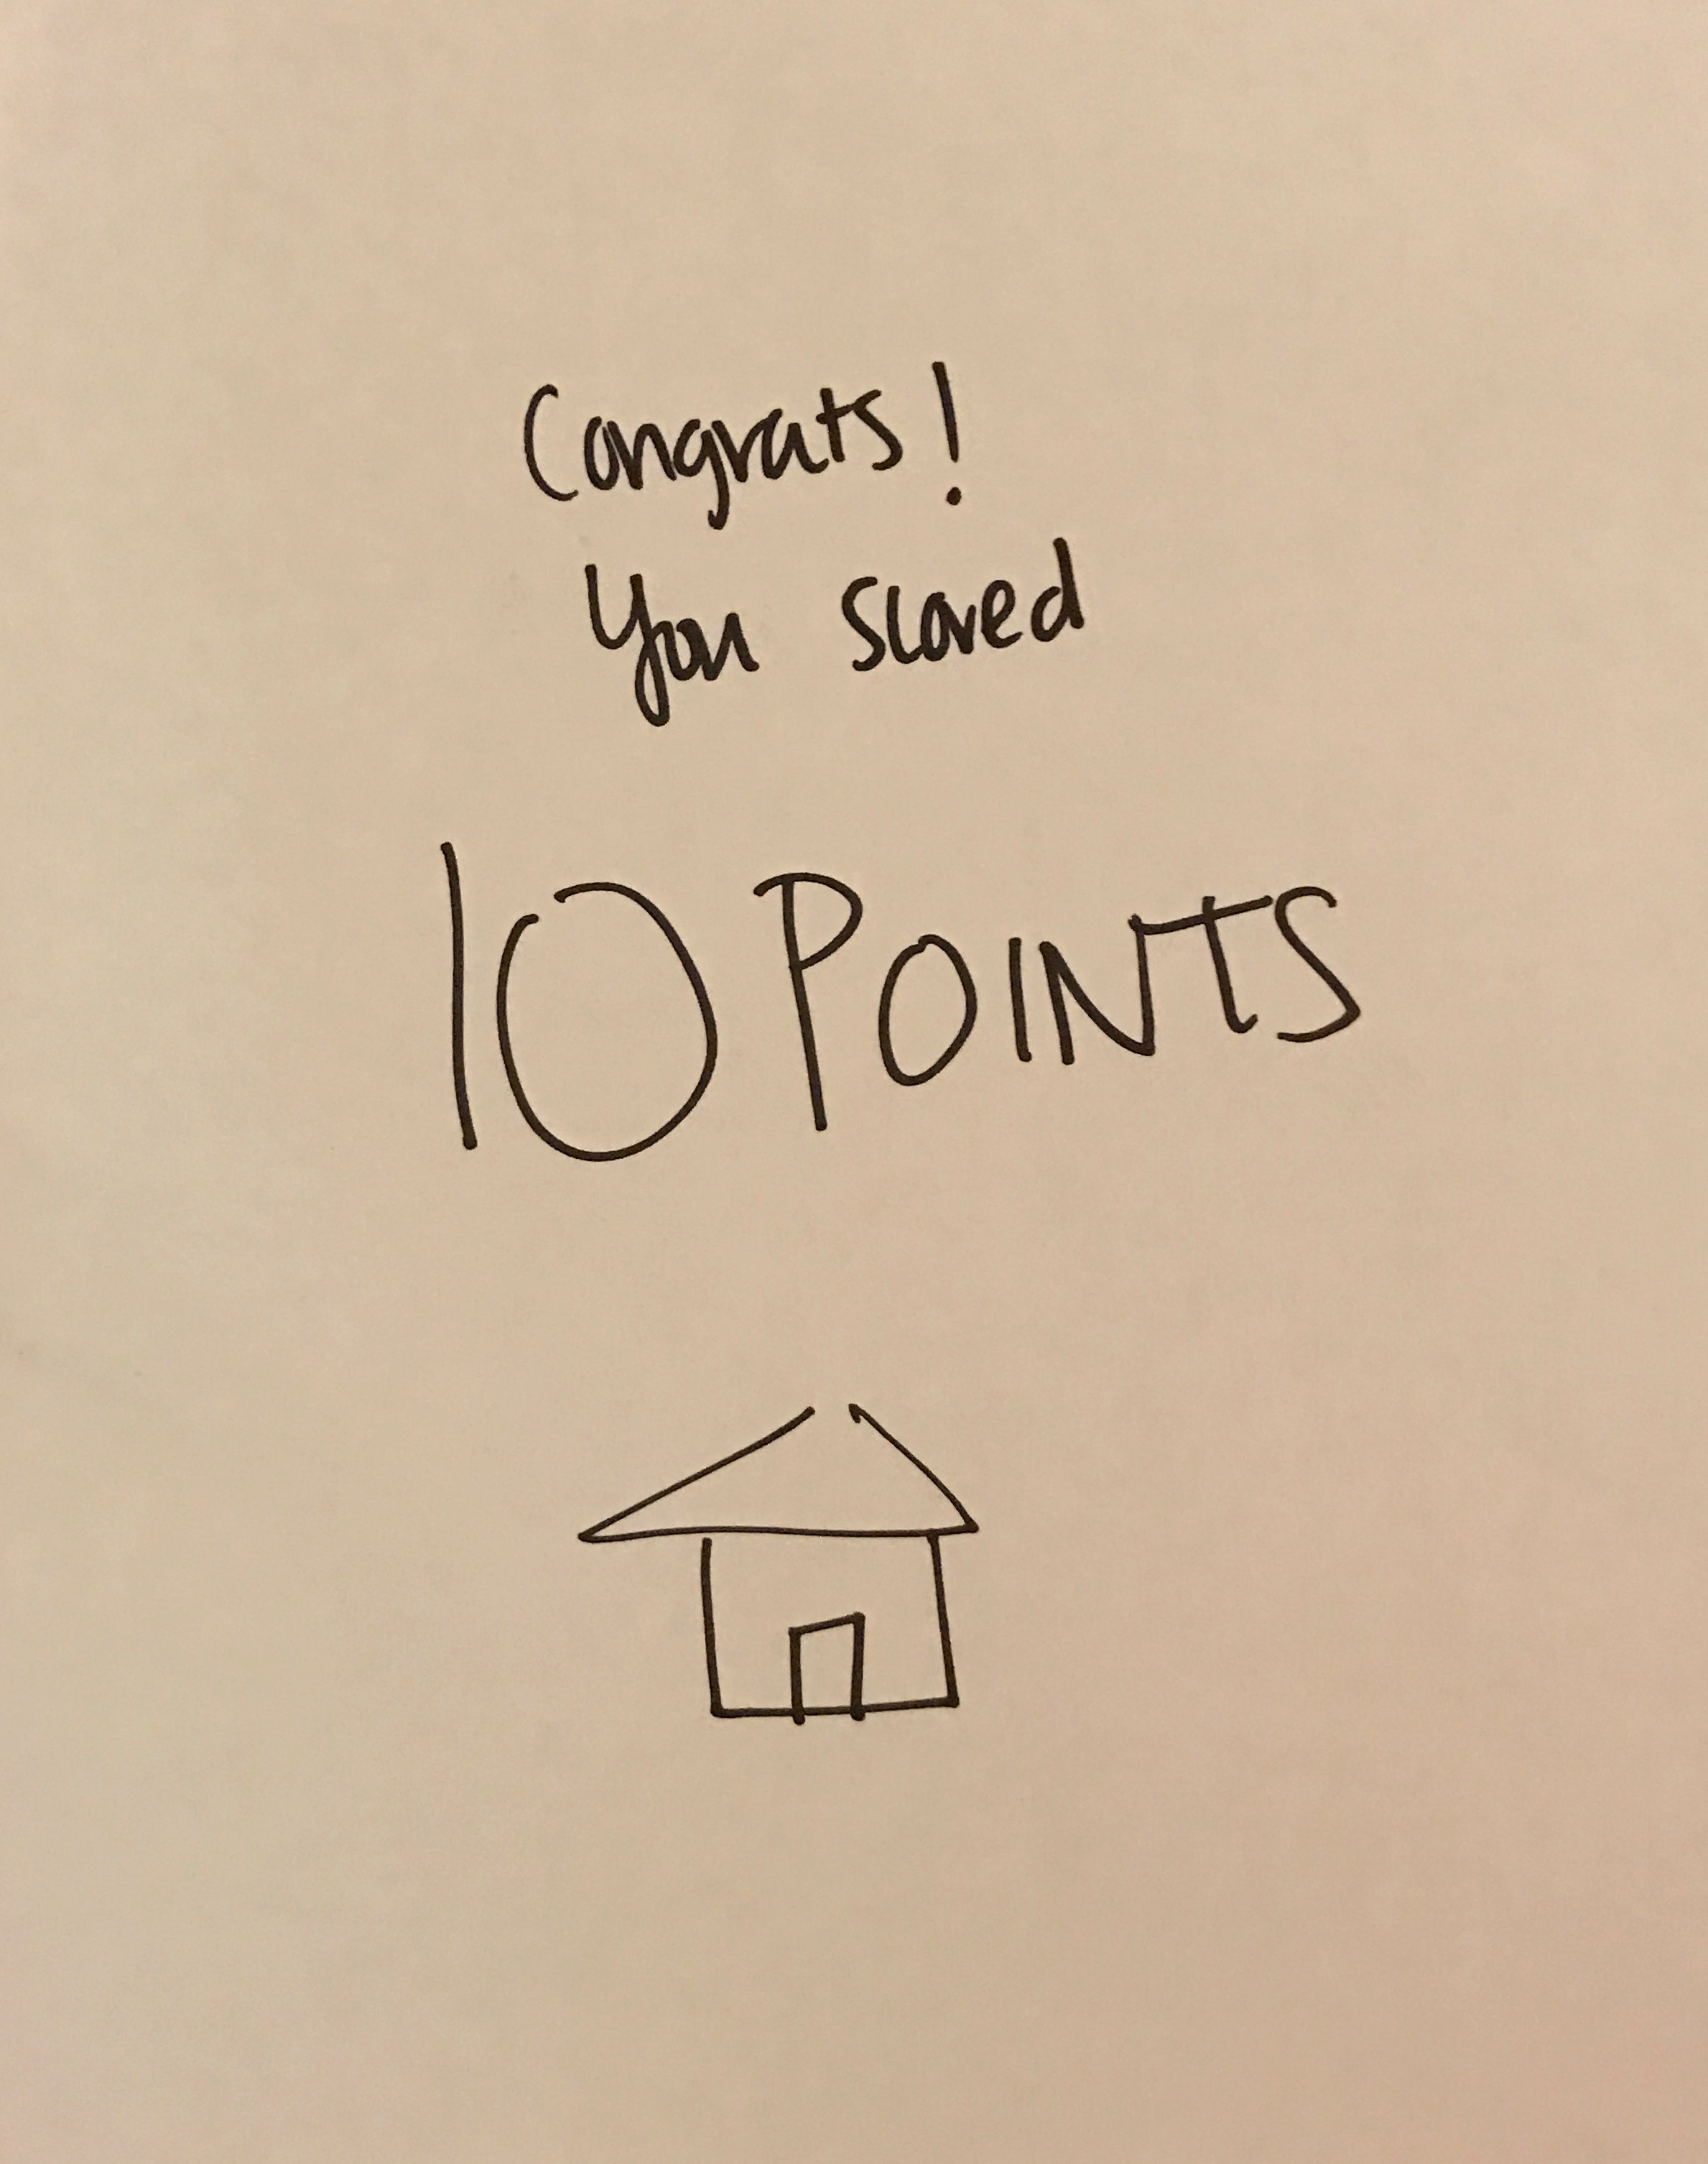 Congrats!
You scored
10 POINTS